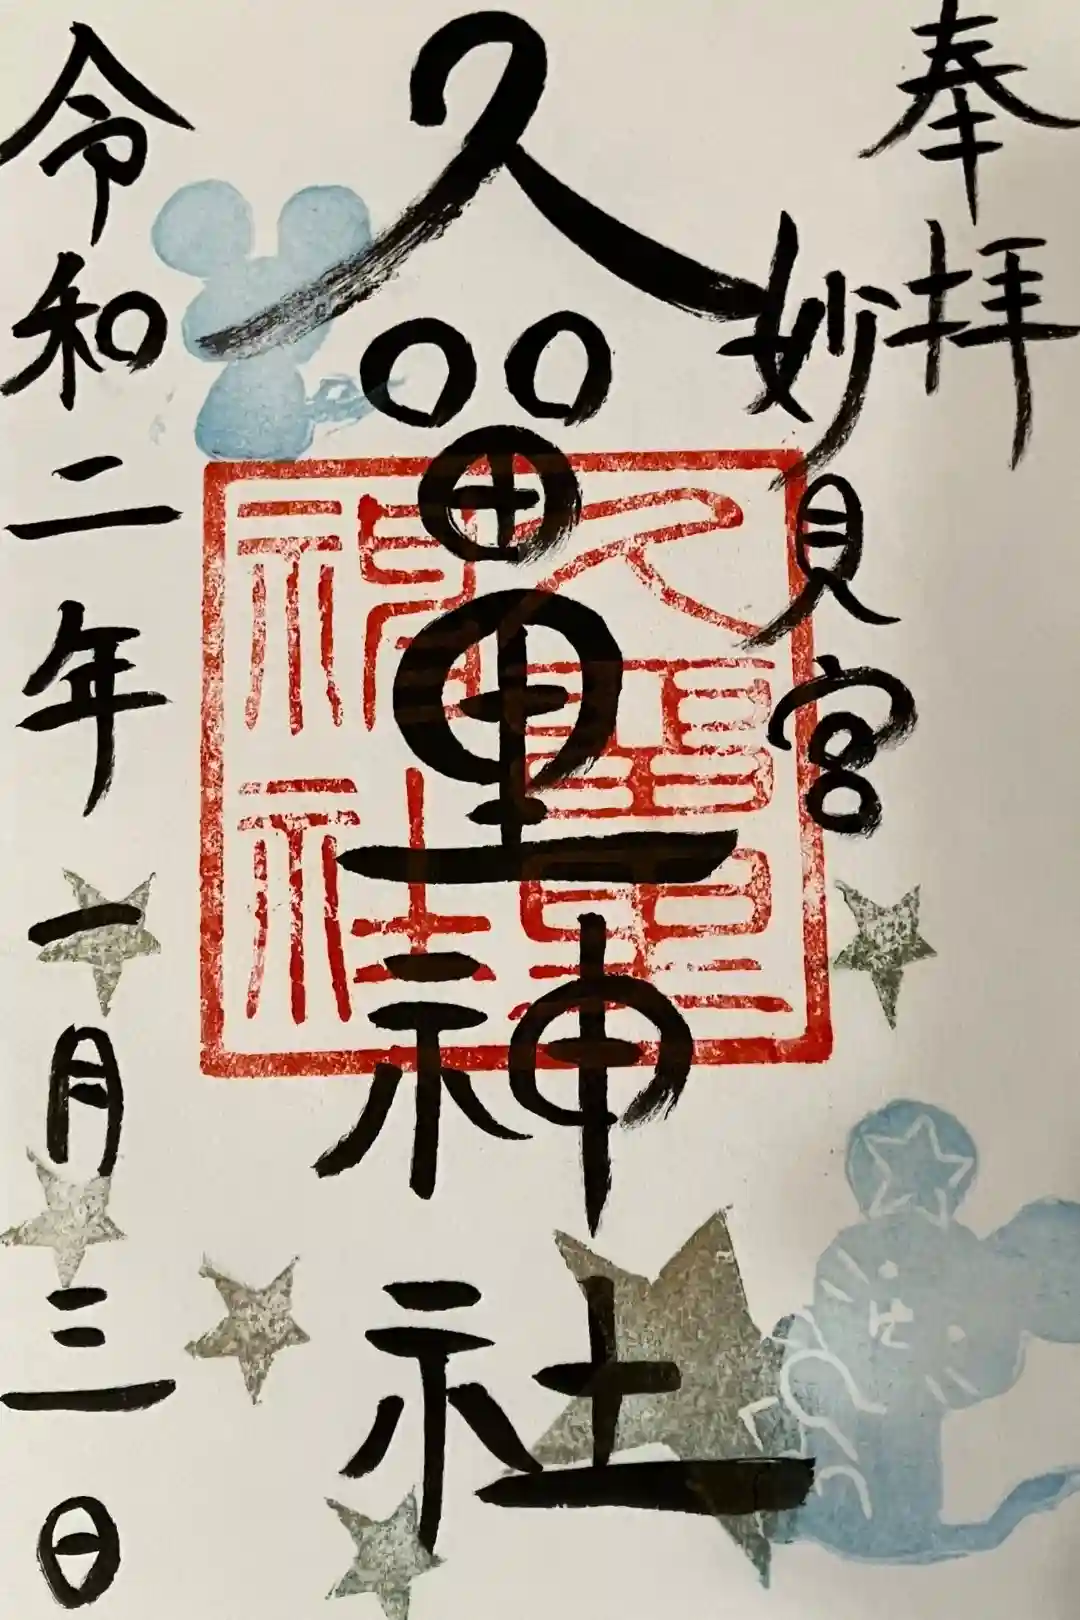 奉拝
妙見宮
久留里神社
久留里
神社
令和二年一月三日